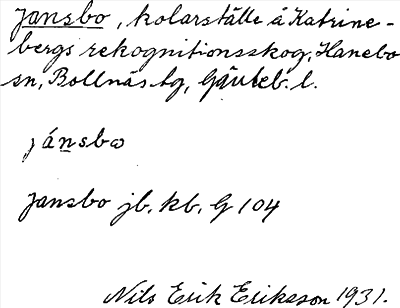 Jansbo, kolarställe å Katrine-
bergs rekognitionsskog, Hanebo
sn, Bollnäs tg, Gävleb. l.
jánsbω
Jansbo jb, kb, G 104
Nils Erik Eriksson 1931.